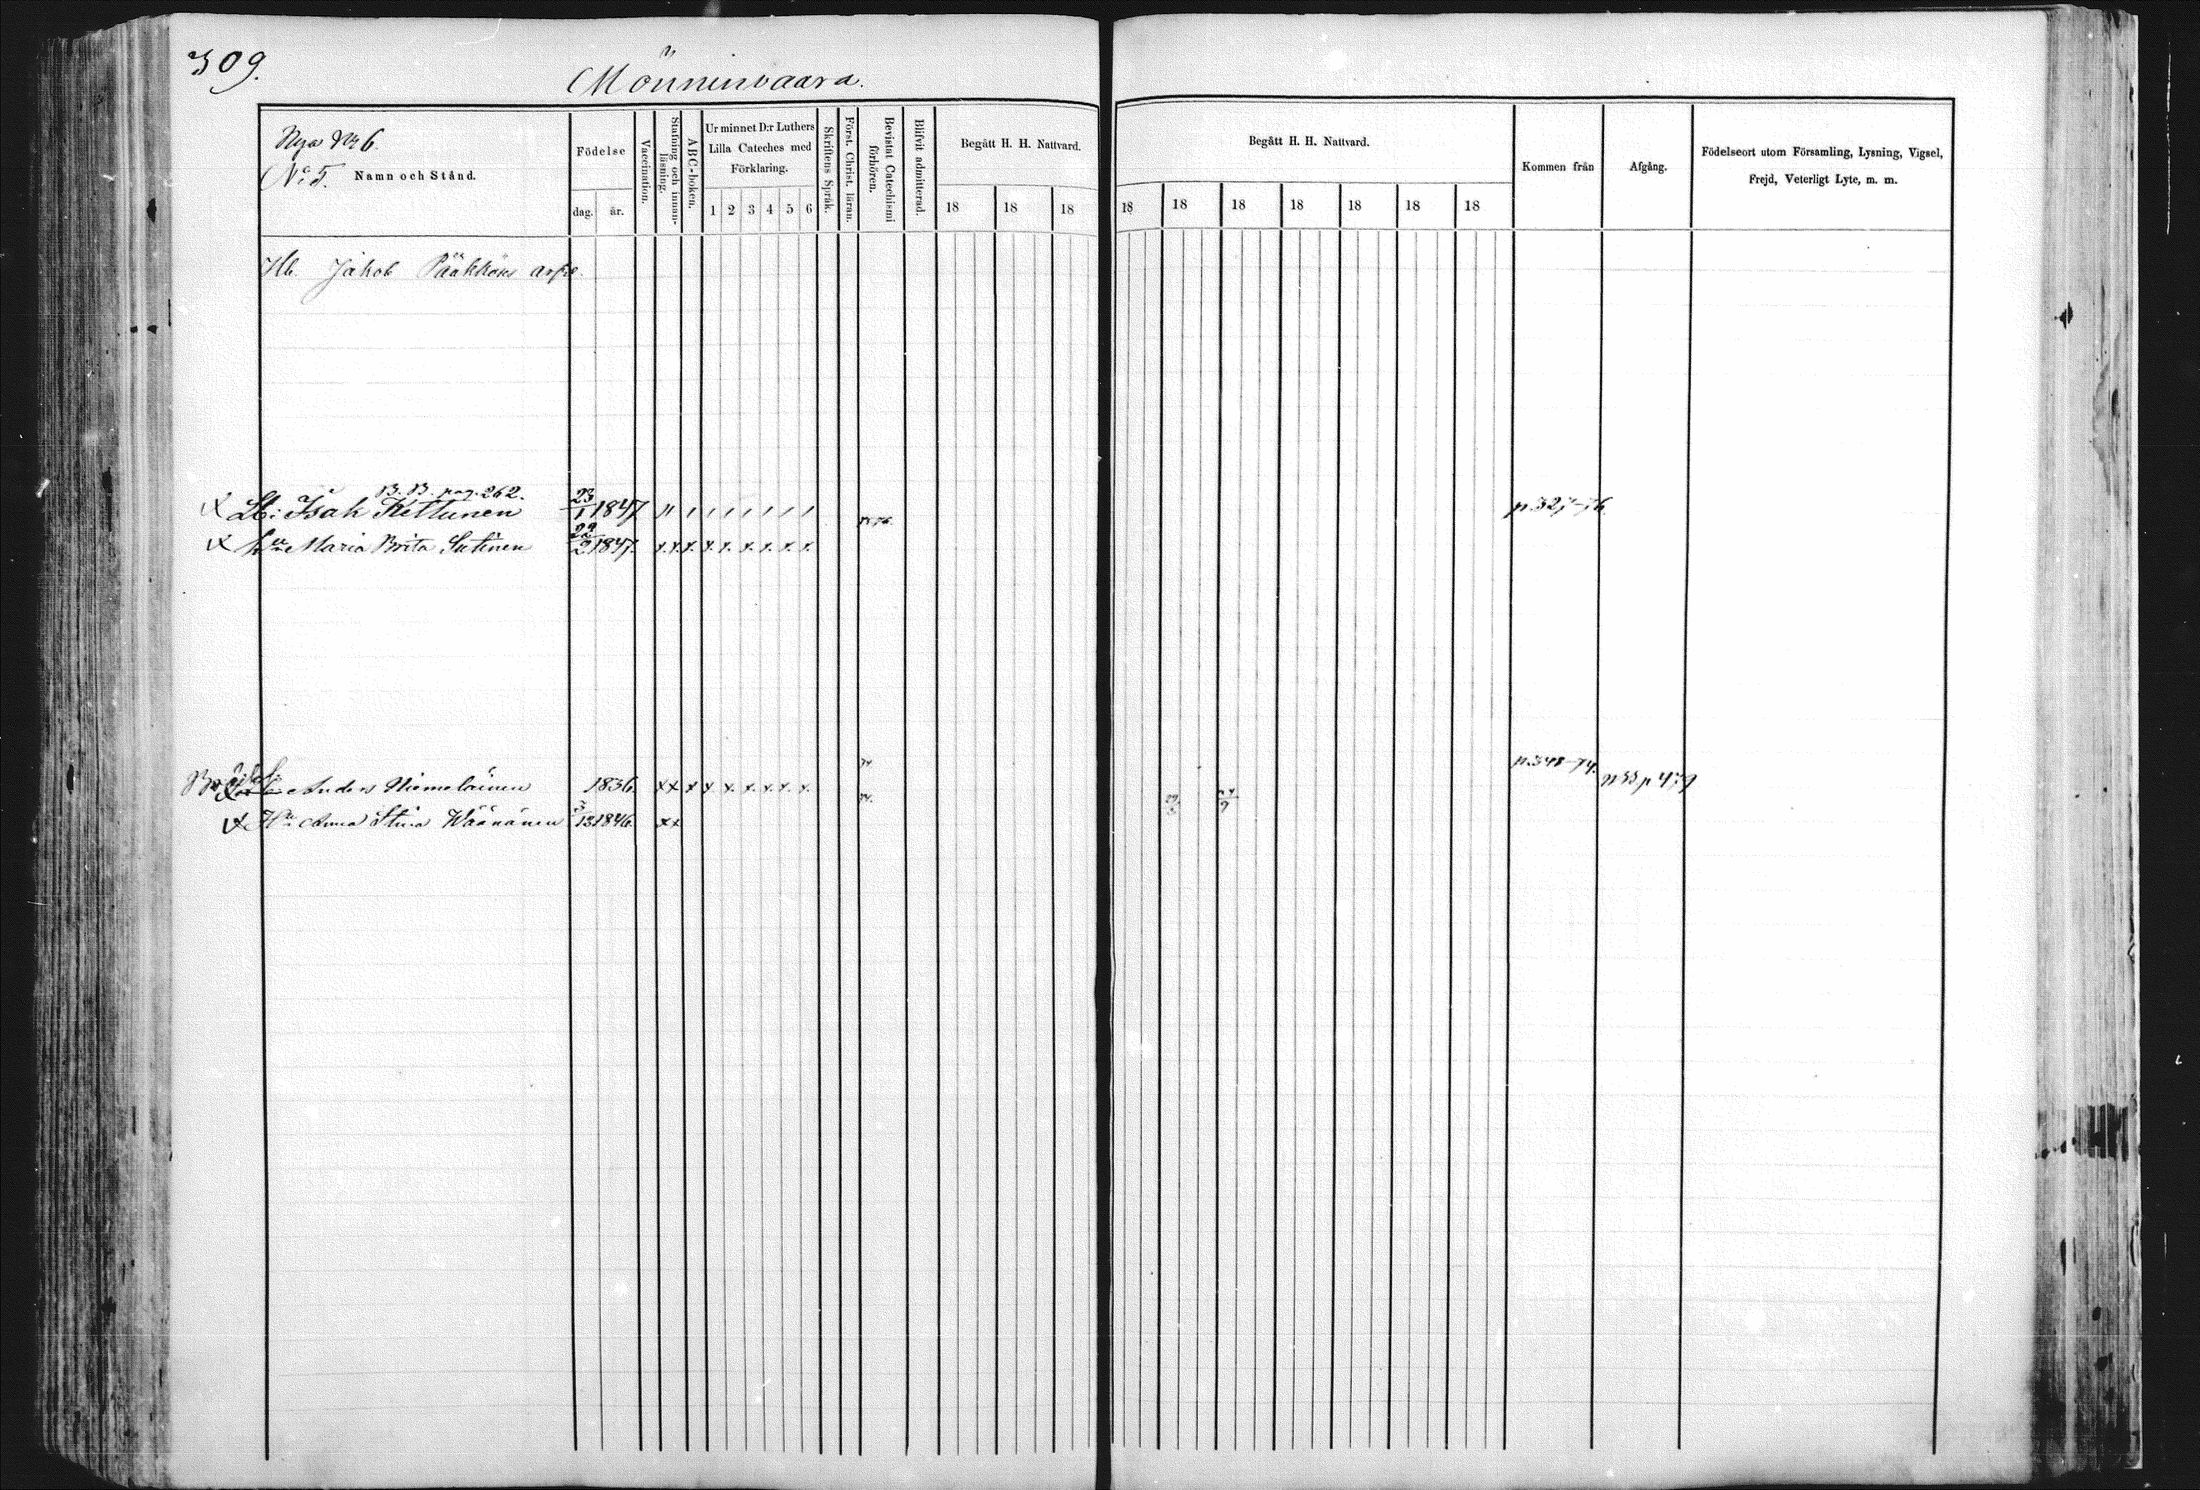 309.
Mönninvaara.
Nya No 6.
No 5. Namn och Stånd.
Födelse
dag. år.
Vaccination.
Stafning och innanläsning.
ABC-boken.
Ur minnet D:r Luthers
Lilla Cateches med
Förklaring.
1 2 3 4 5 6
Skriftens Språk.
Först. Christ. läran.
Bevistat Catechismi förhören.
Blifvit admitterad.
Begått H. H. Nattvard.
18 18 18
Begått H. H. Nattvard.
18 18 18 18 18 18 18
Kommen från
Afgång.
Födelseort utom Församling, Lysning, Vigsel,
Frejd, Veterligt Lyte, m. m.
Hb. Jakob Pääkkönen
B. B. pag. 262.
Lb: Isak Kettunen 23/1 1847 p. 327-76.
hu Maria Brita Sutinen 22/2 1847. x x x x x x x x x
74 p. 348-74.
Anders Niemeläinen 1836. x x x x x x x x x
74.
Hu Anna Stina Wäänänen 3/13 1846. x x